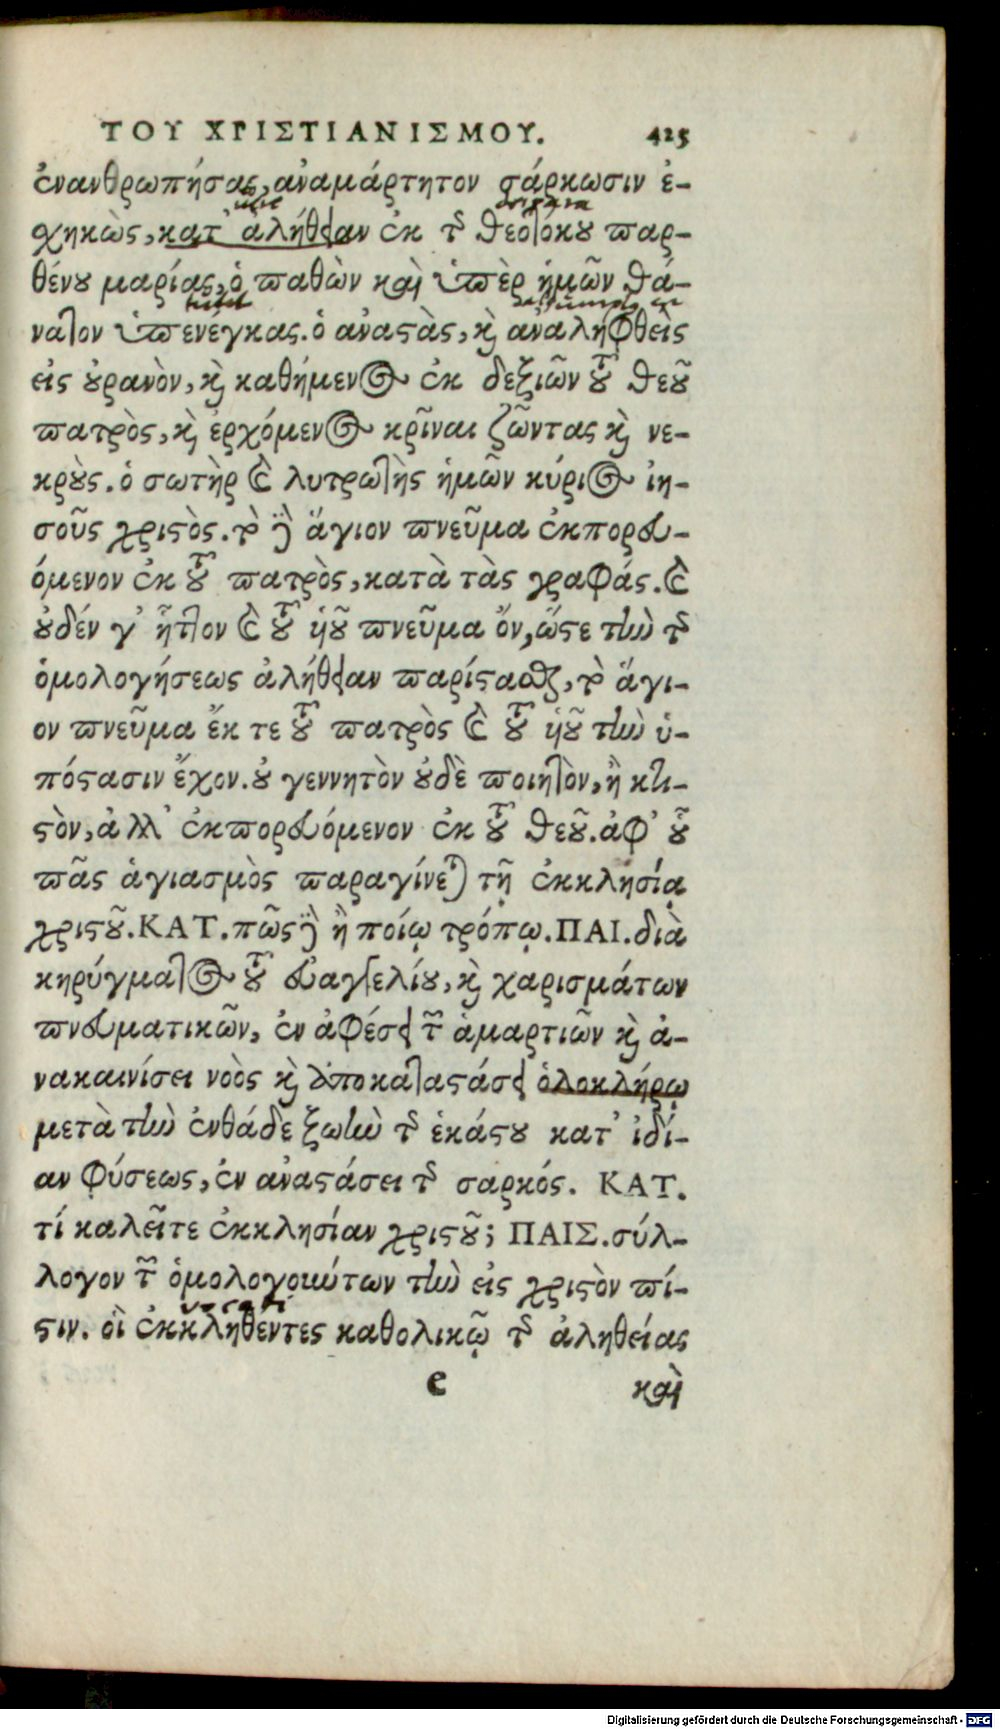 ΤΟΥ ΧΡΙΣΤΙΑΝΙΣΜΟΥ. 425
ἐνανθρωπήσας, ἀναμάρτητον σάρκωσιν ἐ-
χηκὼς, κατ' ἀλήθειαν ἐκ τῆς θεοτόκου παρ-
θένου μαρίας, ὁ παθὼν καὶ ὑπὲρ ἡμῶν θά-
νατον ὑπενέγκας. ὁ ἀναστὰς, καὶ ἀναληφθεὶς
εἰς οὐρανὸν, καὶ καθήμενος ἐκ δεξιῶν τοῦ θεοῦ
πατρὸς, καὶ ἐρχόμενος κρῖναι ζῶντας καὶ νε-
κροὺς. ὁ σωτὴρ καὶ λυτρωτὴς ἡμῶν κύριος ἰη-
σοῦς χριστὸς. τὸ δὲ ἅγιον πνεῦμα ἐκπορευ-
όμενον ἐκ τοῦ πατρὸς, κατὰ τὰς γραφάς. καὶ
οὐδέν γ' ἧττον καὶ τοῦ υἱοῦ πνεῦμα ὄν, ὥστε τὴν τῆς
ὁμολογήσεως ἀλήθειαν παρίστασθαι, τὸ ἅγι-
ον πνεῦμα ἔκ τε τοῦ πατρὸς καὶ τοῦ υἱοῦ τὴν ὑ-
πόστασιν ἔχον. οὐ γεννητὸν οὐδὲ ποιητὸν, ἢ κτι-
στὸν, ἀλλ' ἐκπορευόμενον ἐκ τοῦ θεοῦ. ἀφ' οὗ
πᾶς ἁγιασμὸς παραγίνεται τῇ ἐκκλησίᾳ
χριστοῦ. ΚΑΤ. πῶς δὲ ἢ ποίῳ τρόπῳ. ΠΑΙ. διὰ
κηρύγματος τοῦ εὐαγγελίου, καὶ χαρισμάτων
πνευματικῶν, ἐν ἀφέσει τῶν ἁμαρτιῶν καὶ ἀ-
νακαινίσει νοὸς καὶ ἀποκαταστάσει ὁλοκλήρῳ
μετὰ τὴν ἐνθάδε ζωὴν τῆς ἑκάστου κατ' ἰδί-
αν φύσεως, ἐν ἀναστάσει τῆς σαρκός. ΚΑΤ.
τί καλεῖτε ἐκκλησίαν χριστοῦ; ΠΑΙΣ. σύλ-
λογον τῶν ὁμολογούντων τὴν εἰς χριστὸν πί-
vocati
στιν. οἱ ἐκκληθέντες καθολικῷ τῆς ἀληθείας
e καὶ
Digitalisierung gefördert durch die Deutsche Forschungsgemeinschaft - DFG